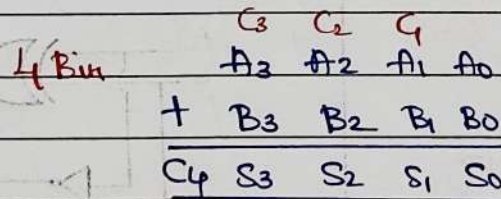 C3 C2 C1
4 Bin A3 A2 A1 A0
+ B3 B2 B1 B0
C4 S3 S2 S1 S0